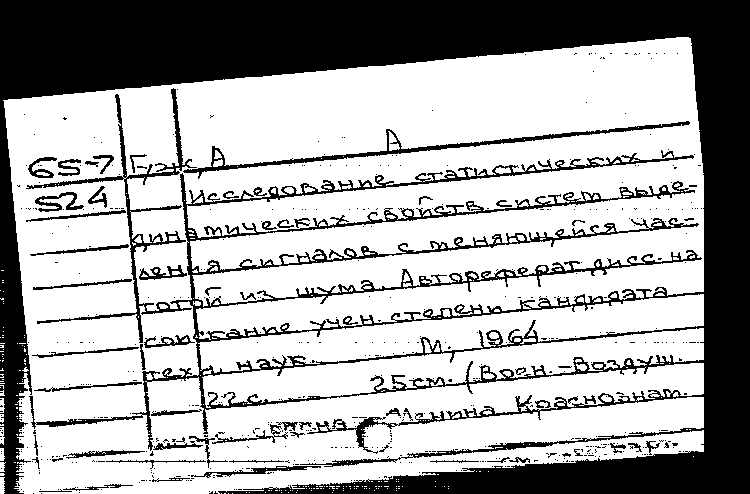 65-7 Гужс, А А
524 Исследование статистических и
динамических свойств систем выде-
ления сигналов с меняющейся час-
тотой из шума. Автореферат дисс. на
соискание учен. степени кандидата
техн. наук. М, 1964.
22с. 25см. (Воен.-Воздуш.
ордена Ленина Краснознам.